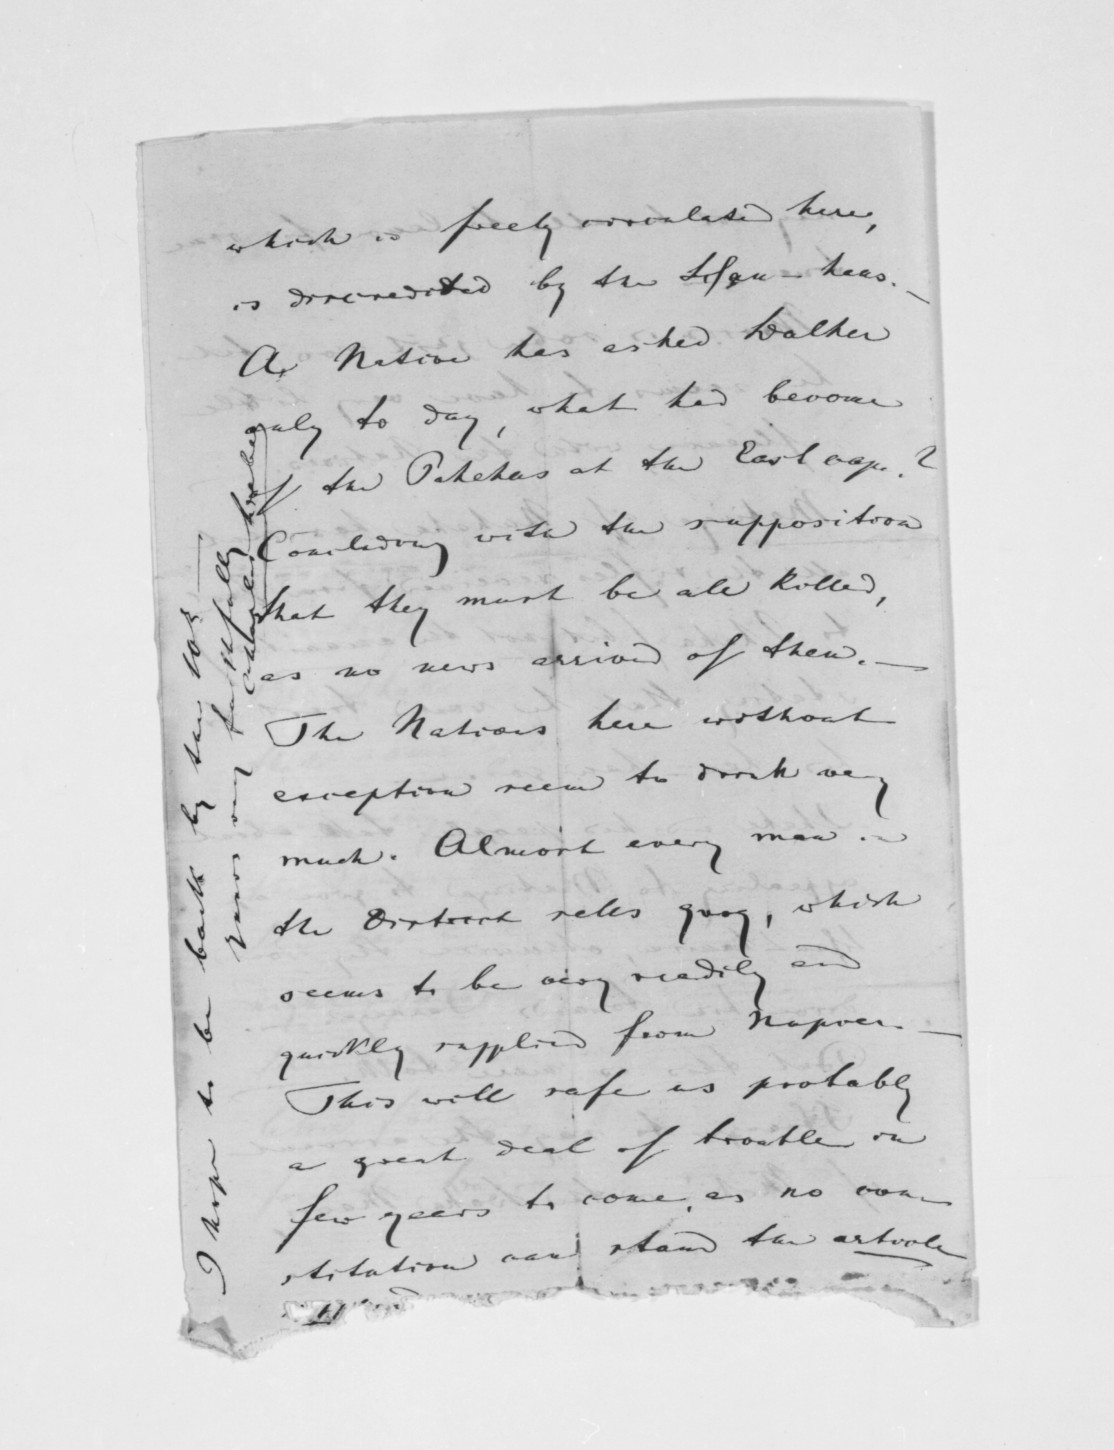 which is freely circulated here,
is discredited by the
A Native has asked Walker
only to day, what had become
of the Pakehas at the East cape.?
Concluding with the supposition
that they must be all killed,
as no news arrived of them. —
The Natives here without
exception seem to drink very
much. Almost every man in
the District sells grog, which
seems to be very readily and
quickly supplied from Napier. —
This will safe us probably
a great deal of trouble in
few years to come, as no con-
stitution can stand the article
I hope to be back by say 10th —
Yours very faithfully